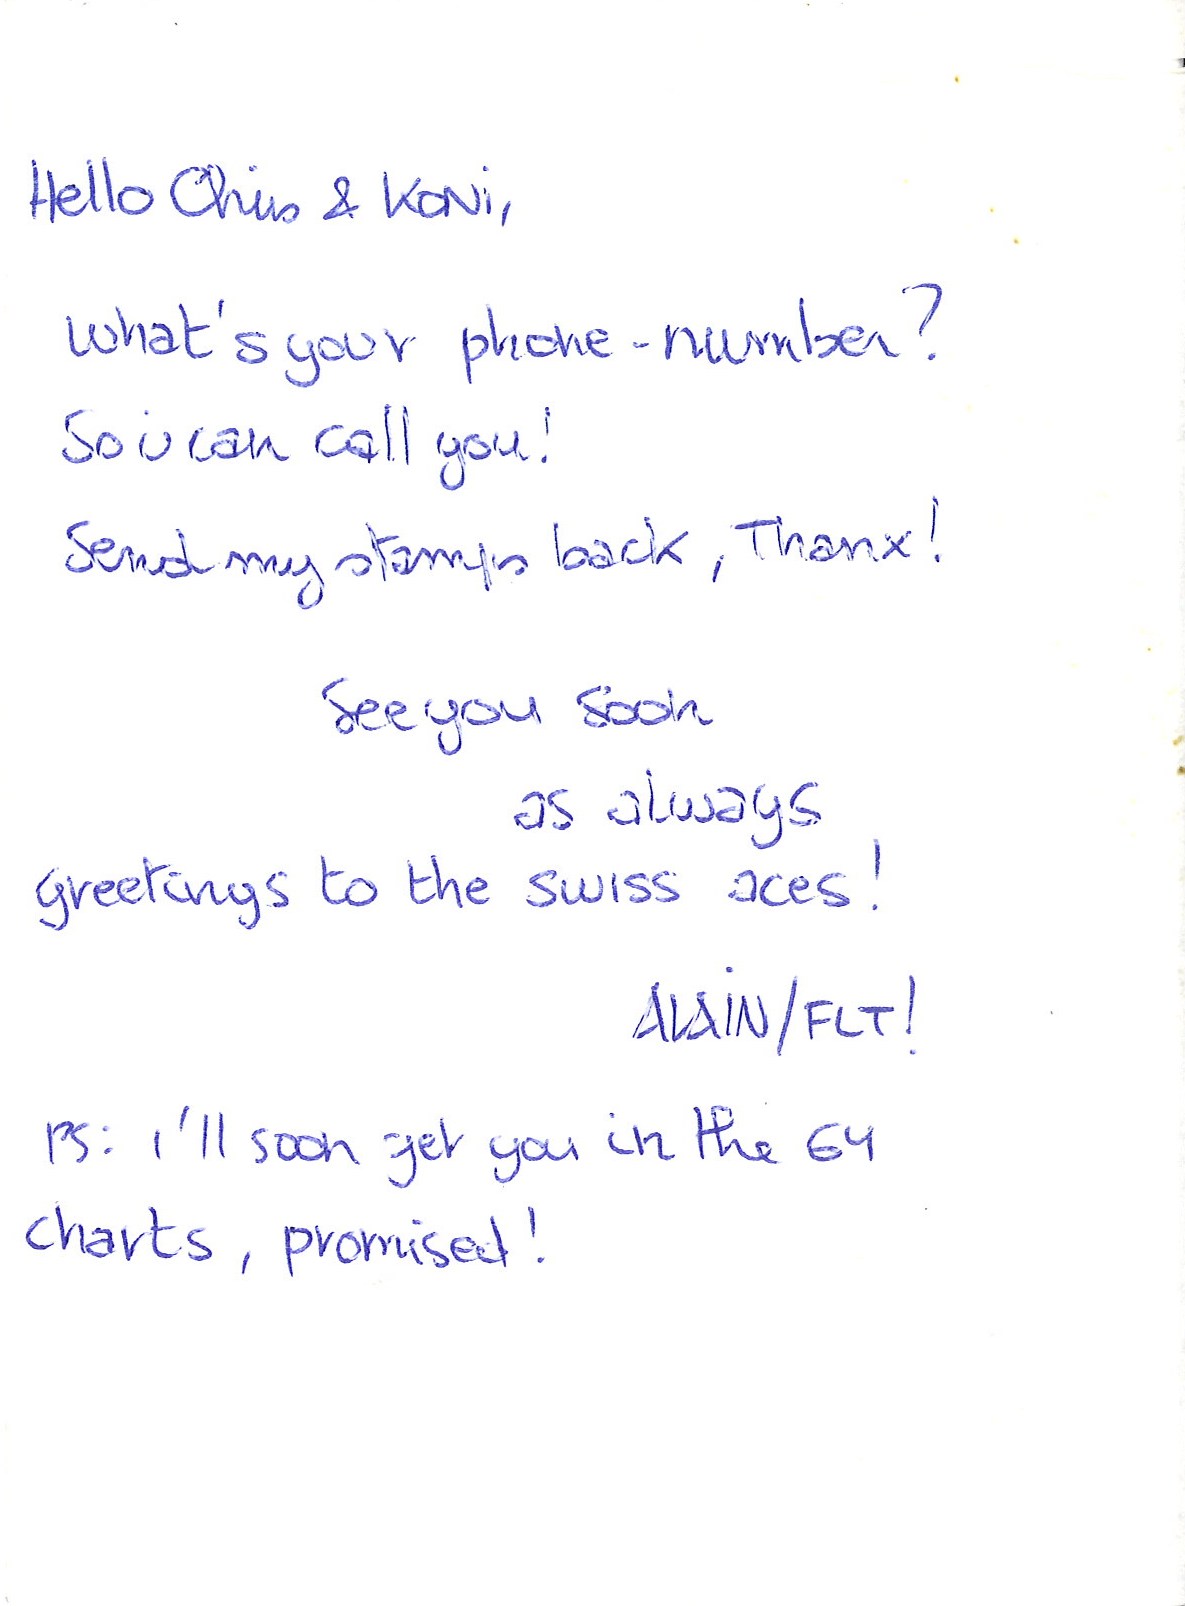 Hello Chris & Koni,
What's your phone-number?
So i can call you!
Send my stamps back, Thanx!
See you soon
as always
greetings to the swiss aces!
ALAIN/FLT!
PS: i'll soon get you in the 64
charts, promised!